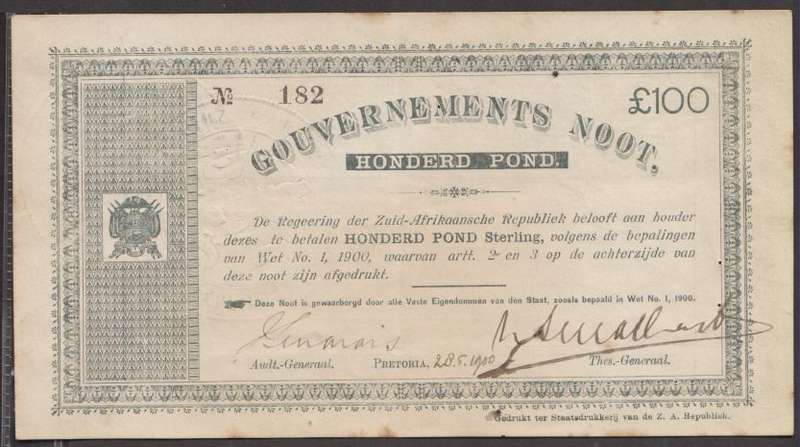 № 182
£100
GOUVERNEMENTS NOOT,
HONDERD POND.
De Regeering der Zuid-Afrikaansche Republiek belooft aan houder
dezes te betalen HONDERD POND Sterling, volgens de bepalingen
van Wet No. 1, 1900, waarvan artt. 2 en 3 op de achterzijde van
deze noot zijn afgedrukt.
Deze Noot is gewaarborgd door alle Vaste Eigendommen van den Staat, zooals bepaald in Wet No. 1, 1900.
Audt.-Generaal. PRETORIA, 28.5.1900 Thes.-Generaal.
Gedrukt ter Staatsdrukkerij van de Z. A. Republiek.